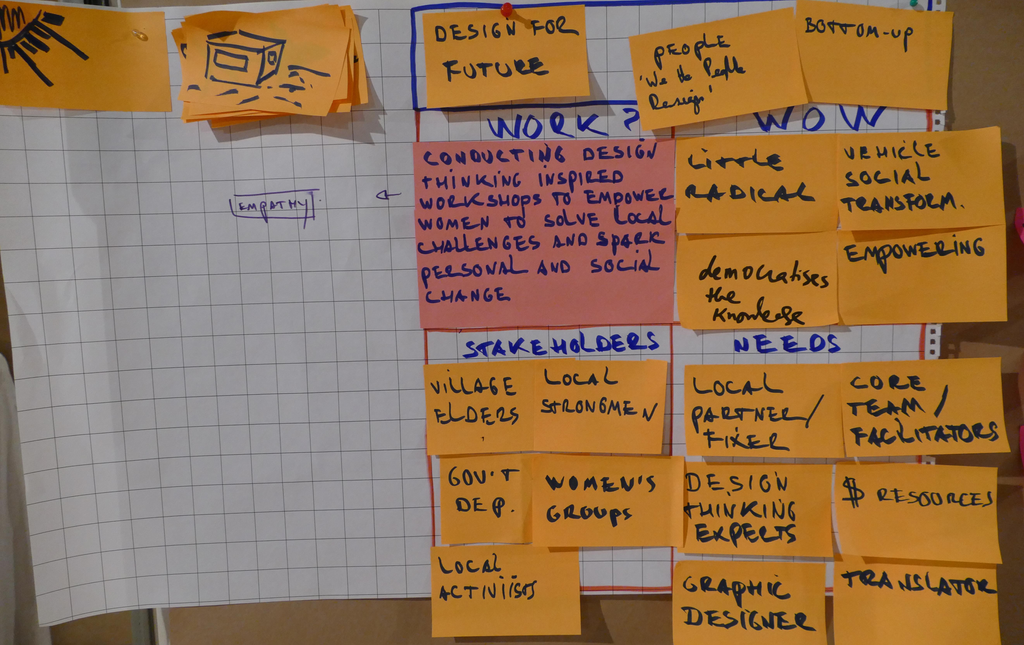 DESIGN FOR
FUTURE
people
'We the People
Design'
BOTTOM-UP
WORK?
WOW
CONDUCTING DESIGN
THINKING INSPIRED
WORKSHOPS TO EMPOWER
WOMEN TO SOLVE LOCAL
CHALLENGES AND SPARK
PERSONAL AND SOCIAL
CHANGE
EMPATHY
LITTLE
RADICAL
VEHICLE
SOCIAL
TRANSFORM.
democratises
the
Knowledge
EMPOWERING
STAKEHOLDERS
VILLAGE
ELDERS
LOCAL
STRONGMEN
GOV'T
DEP.
WOMEN'S
GROUPS
LOCAL
ACTIVIISTS
NEEDS
LOCAL
PARTNER/
FIXER
CORE
TEAM/
FACILITATORS
DESIGN
THINKING
EXPERTS
$ RESOURCES
GRAPHIC
DESIGNER
TRANSLATOR